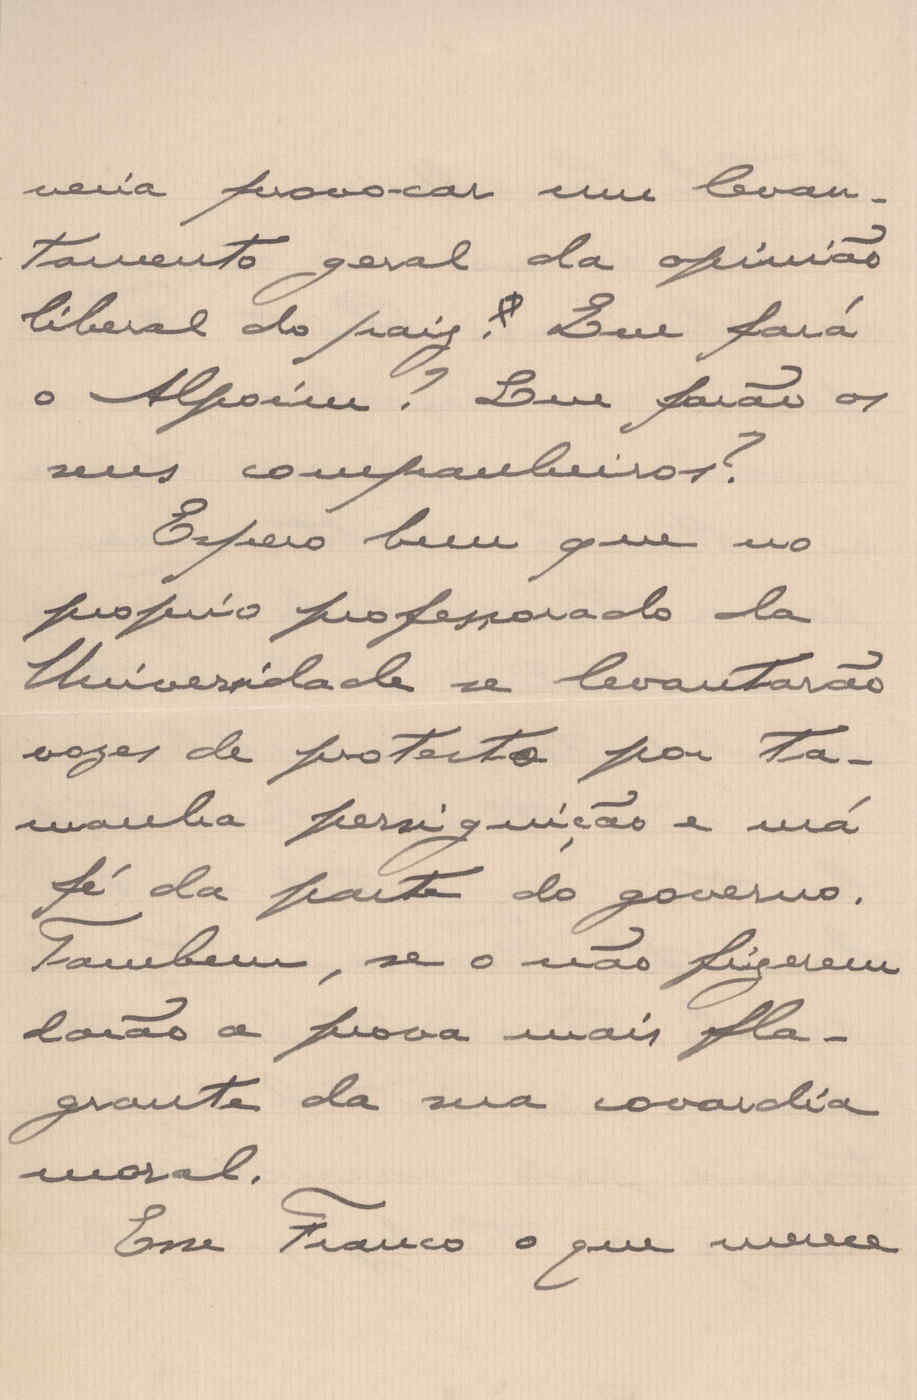 veria provocar um levan-
tamento geral da opinião
liberal do paiz? Que fará
o Alpoim? Que farão os
seus companheiros?
Espero bem que no
proprio professorado da
Universidade se levantarão
vozes de protesto por ta-
manha persiguição e má
fé da parte do governo.
Tambem, se o não fizerem
darão a prova mais fla-
grante da sua covardia
moral.
Esse Franco o que merece